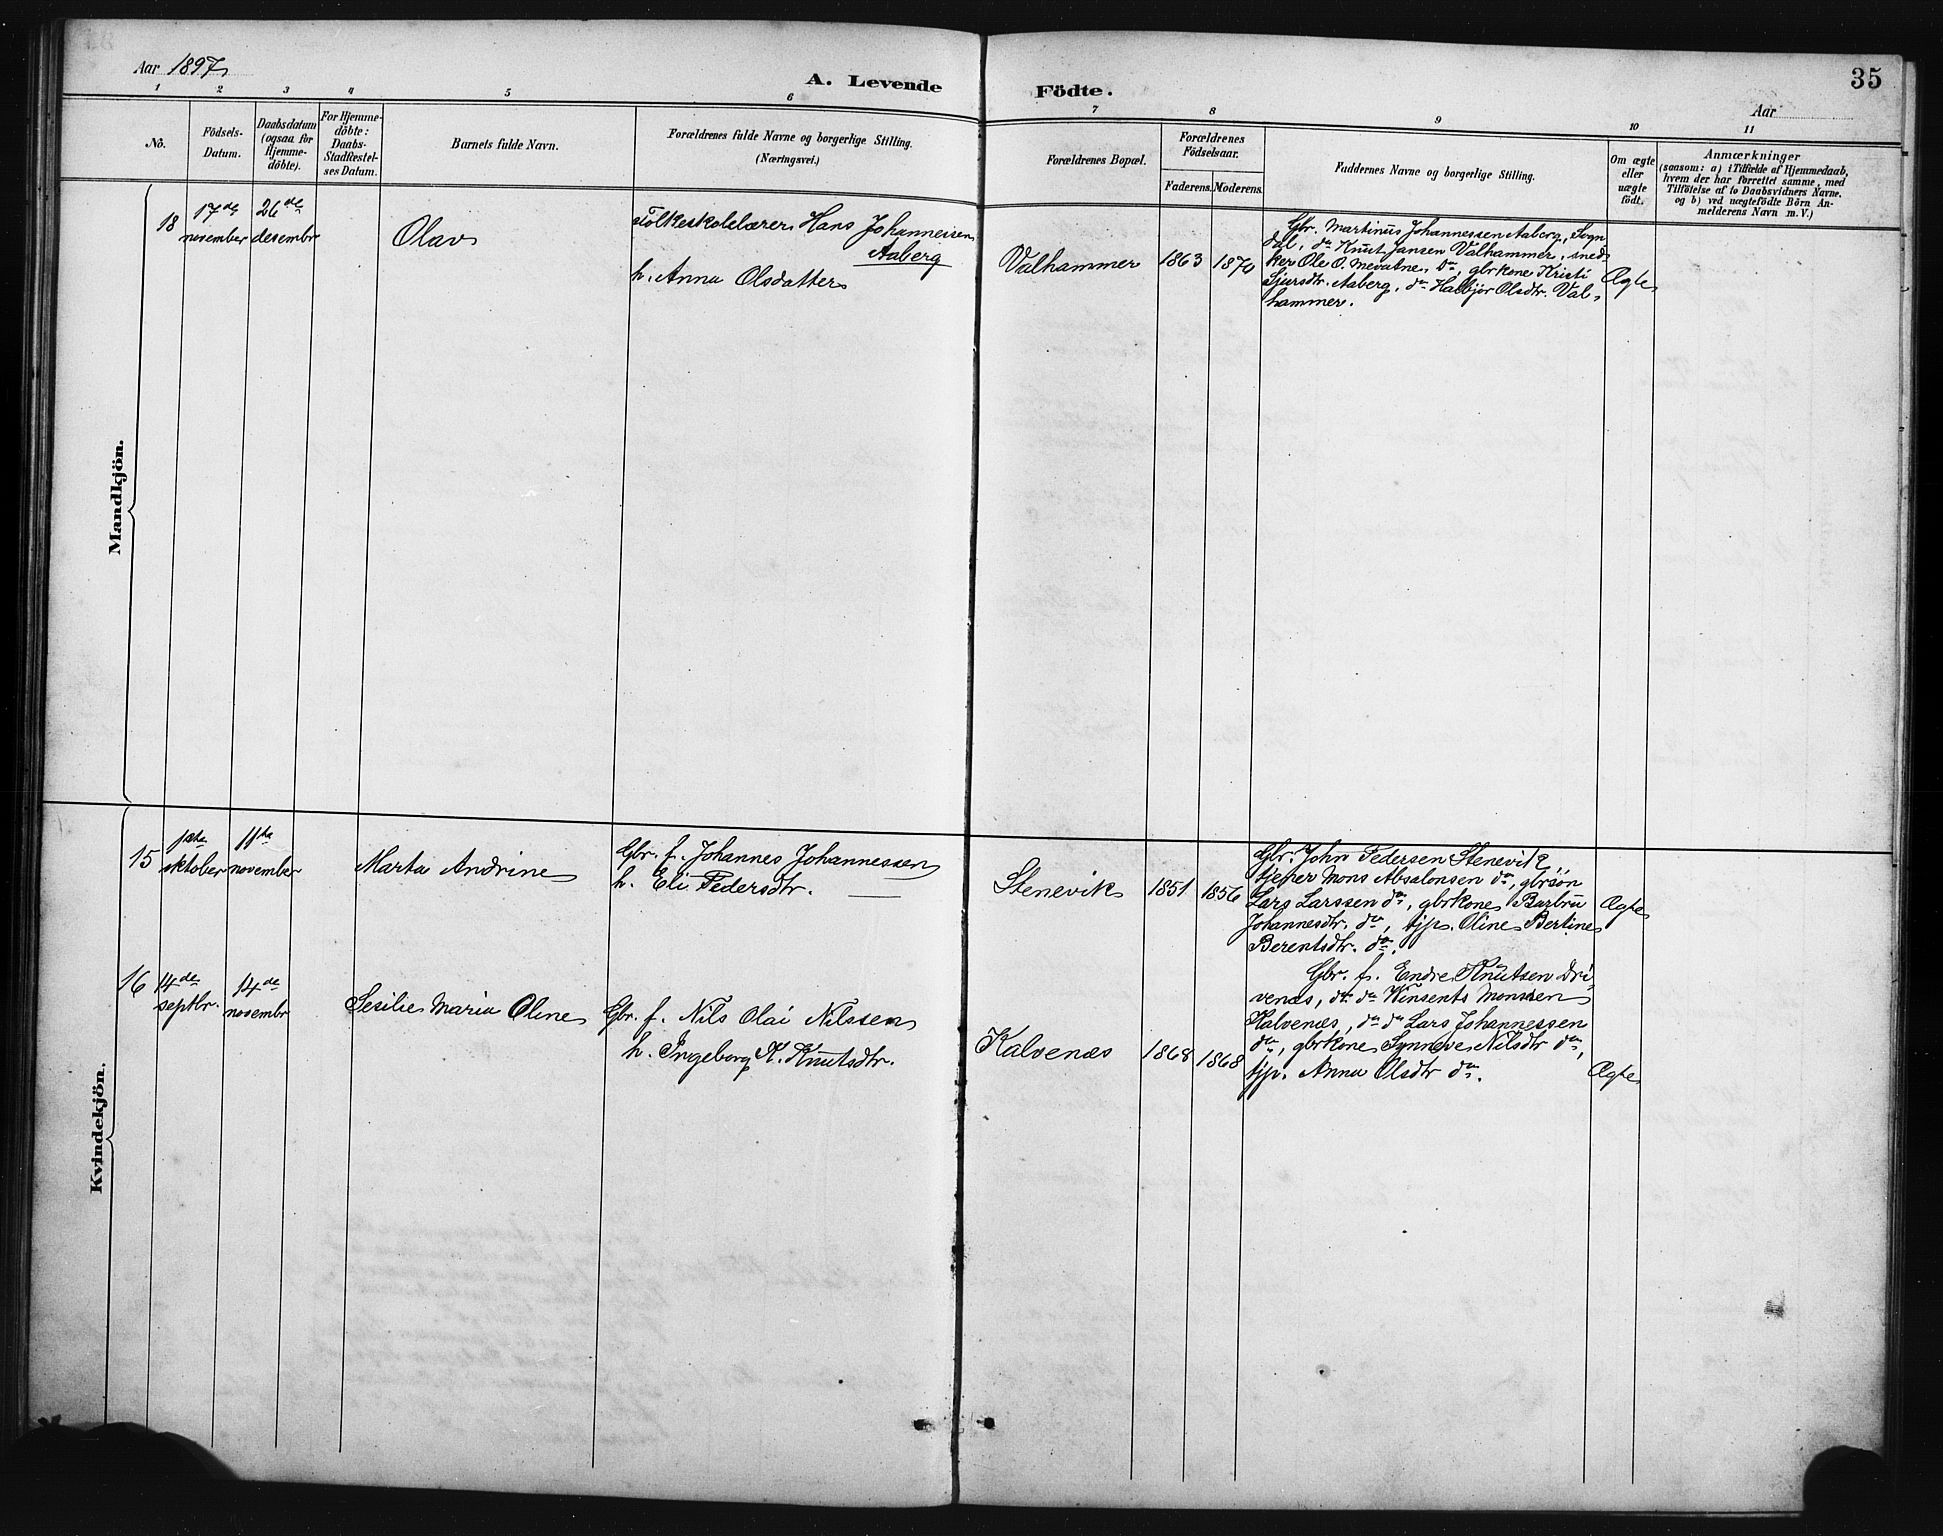 Aar 1897
A. Levende Födte.
Aar
35
1 2 3 4 5 6 7 8 9 10 11
No.
Födsels-
Datum.
Daabsdatum
(ogsaa for
Hjemme-
döbte).
For Hjemme-
döbte:
Daabs-
Stadfestel-
ses Datum.
Barnets fulde Navn.
Forældrenes fulde Navne og borgerlige Stilling.
(Næringsvei.)
Forældrenes Bopæl.
Forældrenes
Födselsaar.
Faderens. Moderens.
Faddernes Navne og borgerlige Stilling.
Om ægte
eller
uægte
födt.
Anmærkninger
(saasom: a) i Tilfælde af Hjemmedaab,
hvem der har forrettet samme, med
Tilföielse af to Daabsvidners Navne.
og b) ved uægtefödte Börn An-
melderens Navn m. V.)
Mandkjön.
18
17de
november
26de
desembr
Olav
Folkeskolelærer Hans Johannessen
Aaberg
h. Anna Olsdatter
Valhammer
1863
1870
Gbr. Martinus Johannessen Aaberg, Sogn
dal, do Knut Jansen Valhammer, sned-
ker Ole O. Mevatne, do, gbrkone Kristi
Sjursdtr. Aaberg, do Halbjör Olsdtr. Val-
hammer.
Ægte
Kvindekjön.
15
1ste
oktober
11te
november
Marta Andrine
Gbr. f. Johannes Johannessen
h. Eli Pedersdtr.
Stenevik
1851
1856
Gbr. John Pedersen Stenevik,
tjener Mons Absalonsen do, gbrsön
Lars Larssen do, gbrkone Barbru
Johannesdtr. do, tjp. Oline Bertine
Berentsdtr. do.
Ægte
16
14de
septbr.
14de
novembr
Sesilie Maria Oline
Gbr. f. Nils Olai Nilssen
h. Ingeborg K. Knutsdtr.
Kalvenæs
1868
1868
Gbr. f. Endre Knutsen Dri-
venæs, do do Winsents Monssen
Kalvenæs, do do Lars Johannessen
do, gbrkone Synneve Nilsdtr do,
tjp. Anna Olsdtr do.
Ægte